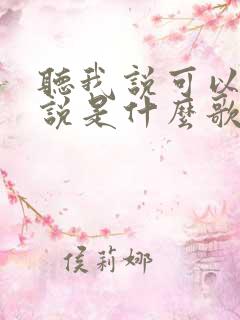 聽我說可以
說是什麼歌
侯莉娜